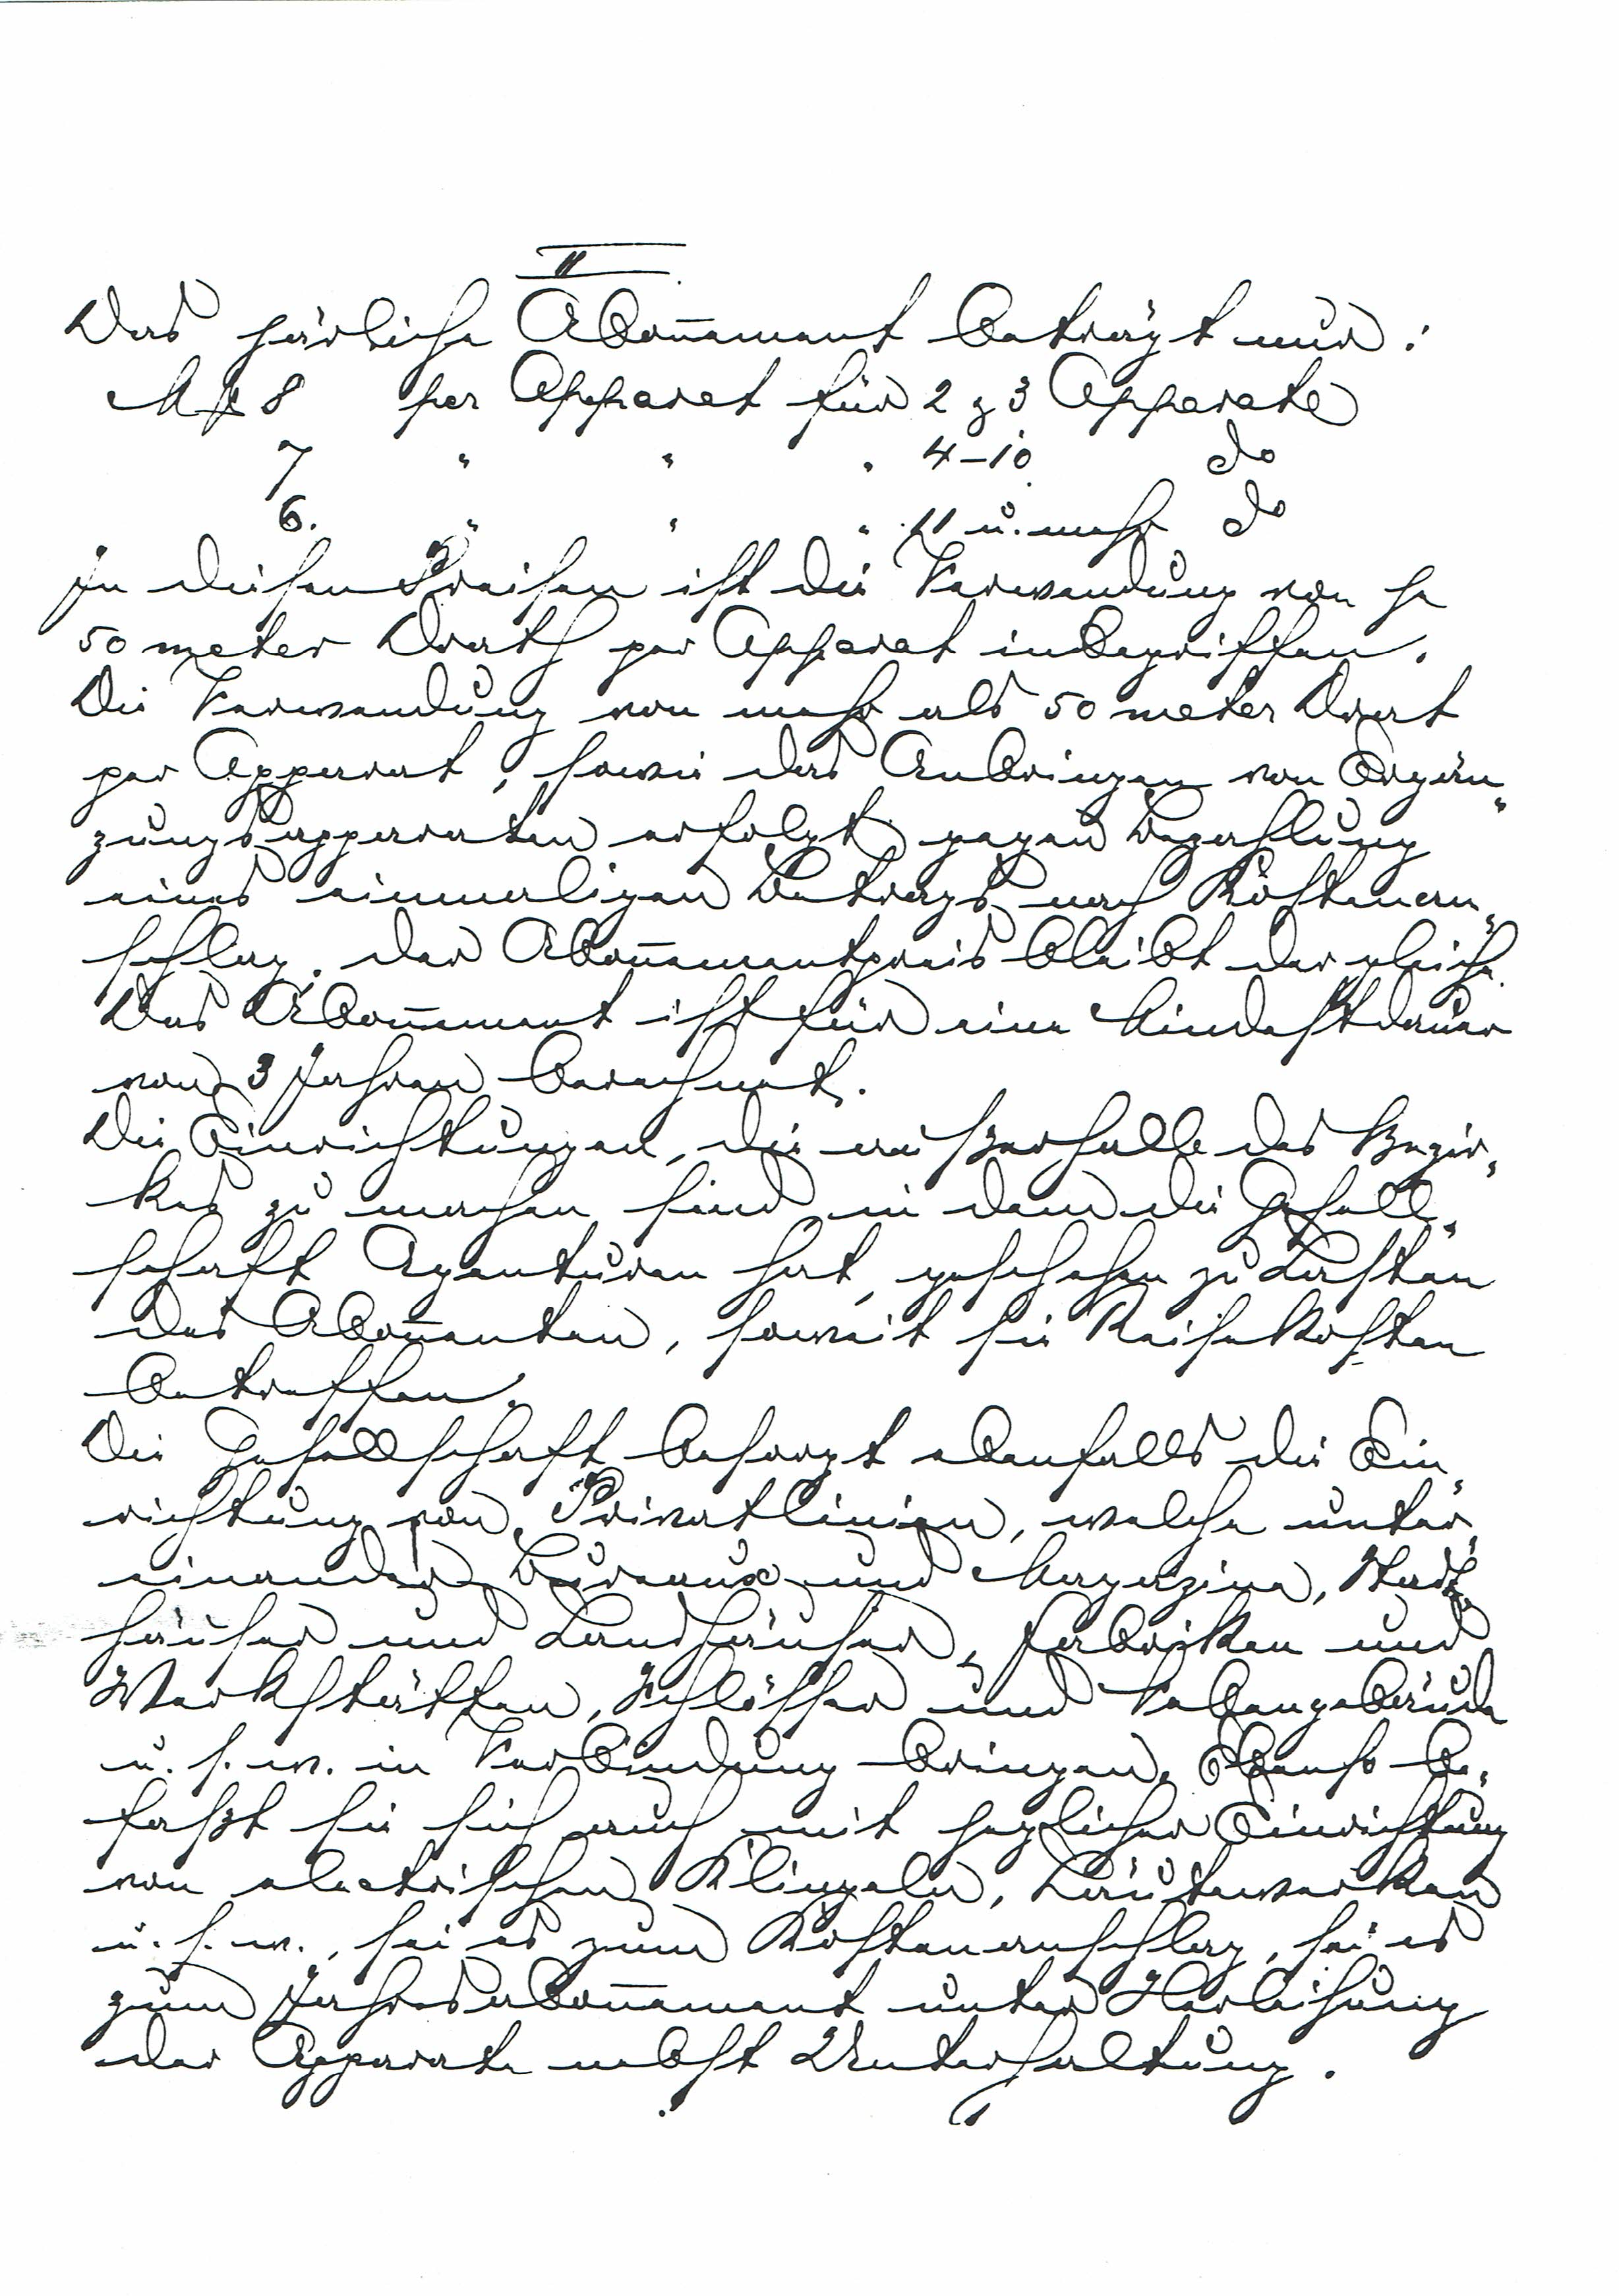 II
Das järliche Abonnement beträgt nur:
Mk 8 per Apparat für 2 & 3 Apparate
7 " " " 4–10 do
6. " " " 11 u. mehr do
In diesen Preisen ist die Verwendung von je
50 meter Drath per Apparat inbegriffen.
Die Verwendung von mehr als 50 meter Drat
per Apparat, sowie das Anbringen von Ergän„
zungsapparaten erfolgt gegen Bezahlung
eines einmaligen Betrags nach Kostenan„
schlag. der Abonnementpreis bleibt der gleiche.
Das Abonnement ist für eine Mindestdauer
von 3 Jahren berechnet.
Die Einrichtungen, die außerhalb des Bezir„
kes zu machen sind in dem die Gesell„
schaft Agenturen hat, geschehen zu Lasten
des Abonnenten, soweit sie Reisekosten
betreffen.
Die Gesellschaft besorgt ebenfalls die Ein„
richtung von Privatlinien, welche unter„
einander Bureaux und Magazine, Stadt„
häuser und Landhäuser, Fabriken und
Werkstätten, Schlösser und Nebengebäude
u. s. w. in Verbindung bringen. Ebenso be„
faßt sie sich auch mit jeglicher Einrichtung
von electrischen Klingeln, Läutewerken
u. s. w., sei es zum Kostenanschlag, sei es
zum Jahresabonnement unter Verleihung
der Apparate nebst Unterhaltung.